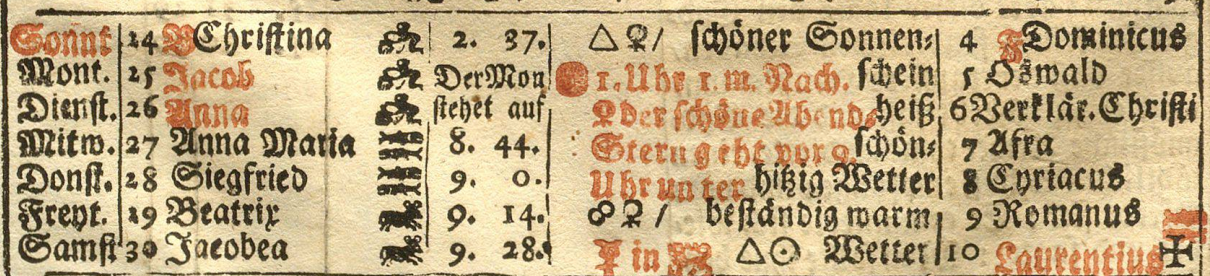 Sonnt 24 B Christina 2. 37. △ ♀ / schöner Sonnen⸗ 4 F Dominicus
Mont. 25 Jacob Der Mon 1. Uhr 1. m. Nach. schein 5 Oswald
Dienst. 26 Anna stehet auf ♀ der schöne Abend⸗ heiß, 6 Verklär. Christi
Mitw. 27 Anna Maria 8. 44. Stern geht vor 9. schön⸗ 7 Afra
Donst. 28 Siegfried 9. 0. Uhr unter hitzig Wetter 8 Cyriacus
Freyt. 29 Beatrix 9. 14. ☍ ♀ / beständig warm, 9 Romanus
Samst 30 Jacobea 9. 28. in △ ☉ Wetter 10 Laurentius ✠